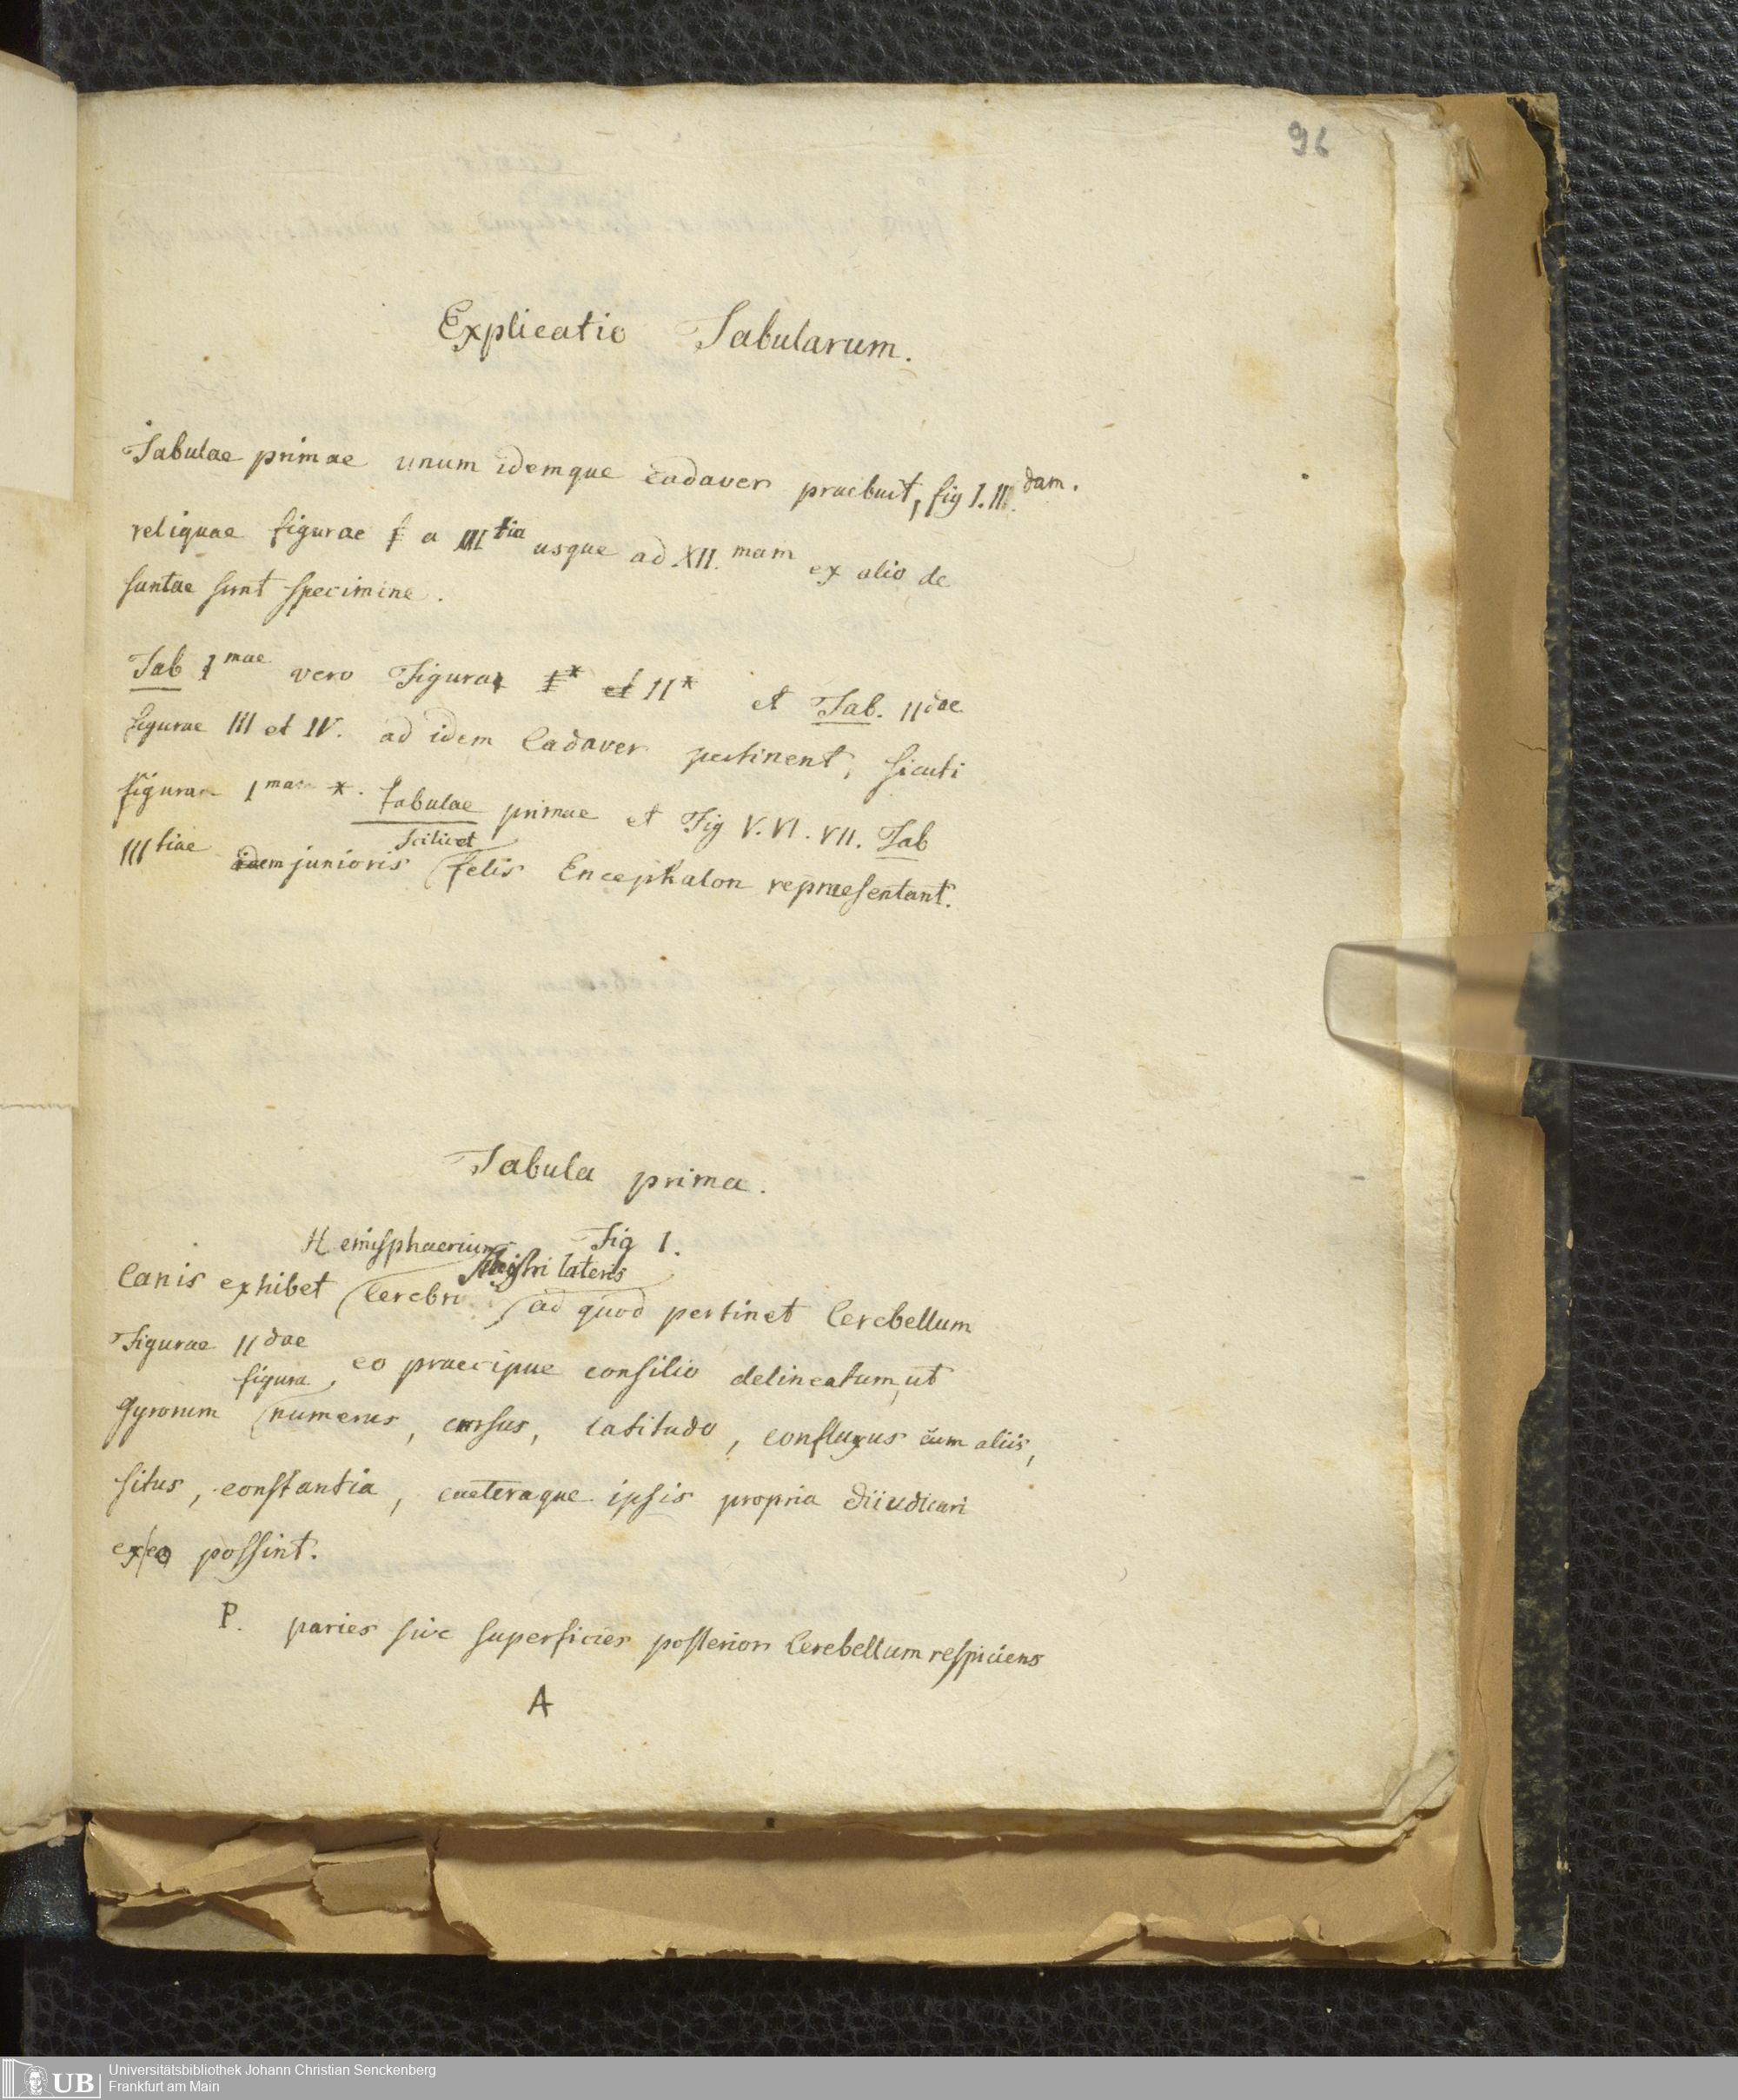 96
Explicatio Tabularum.
Tabulae primae unum idemque cadaver praebuit, fig I. II. dam.
reliquae figurae a III tia usque ad XII. mam ex alio de
suntae sunt specimine.
Tab I mae vero Figura I* et II* et Tab. II dae
figurae III et IV. ad idem Cadaver pertinent, sicuti
figurae I mae *. tabulae primae et Fig V. VI. VII. Tab
scilicet
III tiae idem junioris felis Encephalon repraesentant.
Tabula prima.
Hemisphaerium Fig I.
lateris
Canis exhibet Cerebri ad quod pertinet Cerebellum
Figurae II dae eo praecipue consilio delineatum, ut
figura,
Gyrorum numerus, cursus, latitudo, confluxus cum aliis,
situs, constantia, caeteraque ipsis propria diiudicari
ex eo possint.
P. paries sive superficies posterior Cerebellum respiciens
A
UB Universitätsbibliothek Johann Christian Senckenberg
Frankfurt am Main